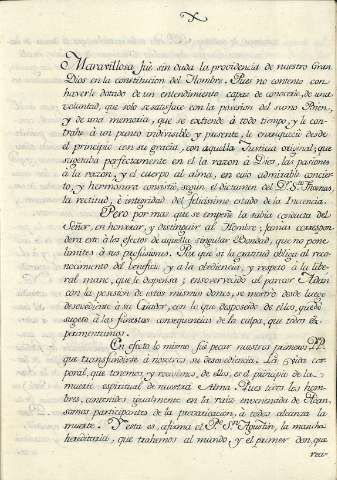 Maravillosa fuè sin duda la providencia de nuestro Gran
Dios en la constitucion del Hombre. Pues no contento con
haverle dotado de un entendimiento capaz de conocerle, de una
voluntad, que solo se satisface con la posesion del sumo Bien,
y de una memoria, que se extiende à todo tiempo, y le con-
trahe à un punto indivisible y presente, le enriqueciò desde
el principio con su gracia, con aquella Justicia original, que
sugetaba perfectamente en el la razon à Dios, las pasiones
à la razon, y el cuerpo al alma, en cuio admirable concier-
to, y hermosura consistiò, segun el dictamen del D.r S.to Thomas,
la rectitud, è integridad del felicisimo estado de la Inocencia.
Pero por mas que se empeñe la sabia conducta del
Señor, en honrar, y distinguir al Hombre; jamas correspon-
dera este à los efectos de aquella singular Bondad, que no pone
limites à sus profusiones. Por que si la gratitud obliga al reco-
nocimiento del beneficio, y a la obediencia, y respeto à la libe-
ral mano, que le dispensa; ensoervecido al parecer Adan
con la posesion de estos mismos dones, se mostrò desde luego
desobediente à su Criador, con lo que desposeido de ellos, quedò
sugeto à las funestas consequencias de la culpa, que todos ex-
perimentamos.
En efecto lo mismo fuè pecar nuestros primeros PP.
que transfundirse à nosotros su desobediencia. La vida cor-
poral, que tenemos y recivimos, de ellos, es el principio de la
muerte espiritual de nuestra Alma. Pues todos los hom-
bres, contenidos igualmente en la raiz envenenada de Adan,
somos participantes de la prevaricacion, à todos alcanza la
muerte. Y esta es, afirma el P.e S.n Agustin, la mancha
hereditaria, que trahemos al mundo, y el primer don, que
reci-